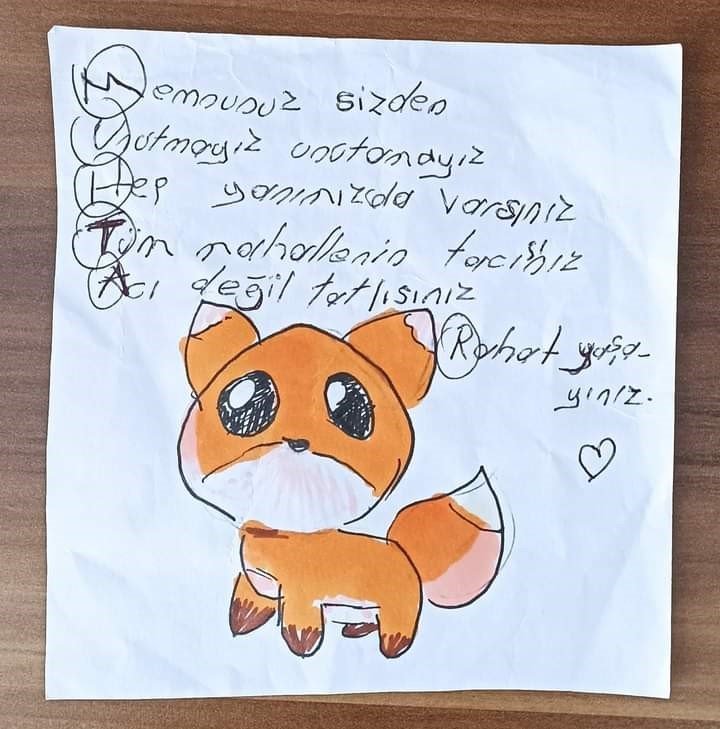 Memnunuz sizden
Unutmayız unutamayız
Hep yanımızda varsınız
Tüm mahallenin tacısınız
Acı değil tatlısınız
Rahat yaşa-
yınız.